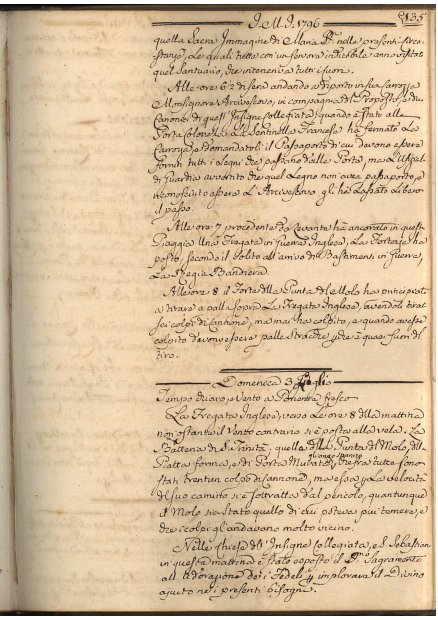 J. M. J. 1796 135
quella Sacra Immagine di Maria nelle presenti circo-
stanze, Le quali tutte con un fervore indicibile anno visitato
quel Santuario, che riteneva tutti i fuori.
Alle ore 6½ di sera andando a diporto in sua Carrozza
Monsignore Arcivescovo, in compagnia del Proposto, e due
Canonici di quest' Insigne Collegiata, quando è stato alla
Porta Colonella La Sentinella Francese ha fermato La
Carrozza, e domandatoli il Passaporto di cui devono essere
forniti tutti i Legni che passano dalle Porte, ma L'Uffizial
di Guardia avvertito che quel Legno non avea passaporto, e
riconosciuto essere L'Arcivescovo gli ha Lassato Libero
il passo.
Alle ore 7 procedente da Levante ha ancorato in questa
Piaggia Una Fregata in Guerra Inglese, La Fortezza ha
posto, secondo il Solito all'arrivo di Bastimenti in Guerra,
La Regia Bandiera.
Alle ore 8 il Forte della Punta del Molo ha principiato
a tirare a palla sopra La Fregata Inglese, avendoli tirato
sei colpi di Cannone, ma mai ha colpito, e quando avesse
colpito devono essere palle Stracche che è quasi fuori di
tiro.
Domenica 3 Luglio
Tempo chiaro, e Vento a Ponente fresco
La Fregata Inglese, verso Le ore 8 della mattina
non ostante il Vento contrario si è posta alla vela. La
Batteria di S. Trinità, quella della Punta del Molo, della
Piatta forma, e di Porta Murata gli anno sparato che fra tutte sono
stati trentun colpi di Cannone, ma essa La velocità
del suo camino si è sottratta dal pericolo, quantunque
il Molo sia stato quello di cui poteva più temere, e
che i colpi gl'andavano molto vicino.
Nella Chiesa dell' Insigne Collegiata, e S. Sebastiano
in questa mattina è stato esposto il Sagramento
all' Adorazione dei Fedeli implorare il Divino
ajuto nei presenti bisogni.